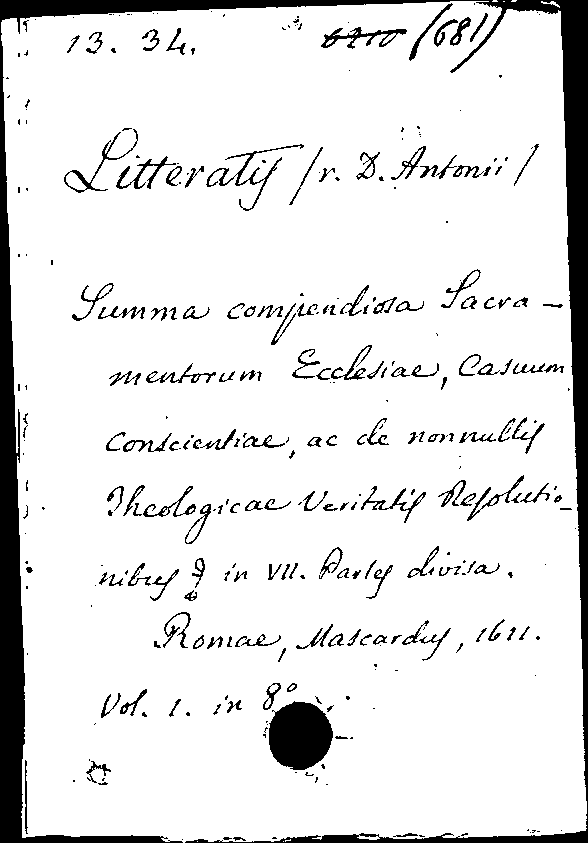 13. 34. 6210 (681)
Litteratis /r. D. Antonii/
Summa compendiosa Sacra-
mentorum Ecclesiae, Casuum
Conscientiae, ac de nonnullis
Theologicae Veritatis Resolutio-
nibus in VII. Partes divisa.
Romae, Mascardus, 1611.
Vol. 1. in 8°